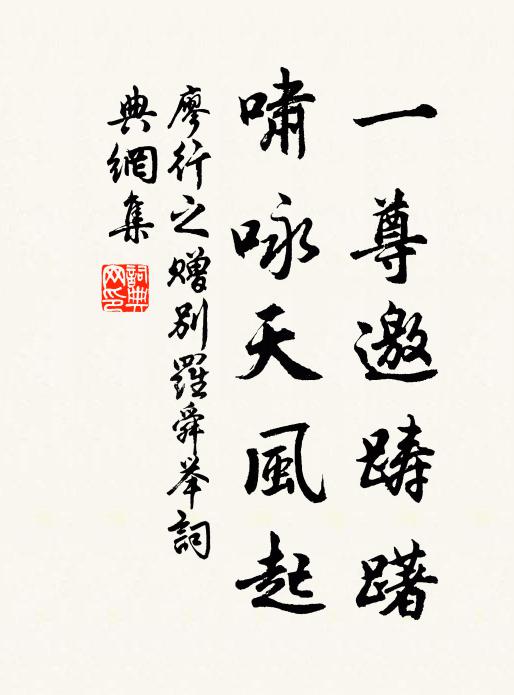 一尊邀踌躇
啸咏天風起
廖行之赠别羅舜举詞
典網集
詞典网印